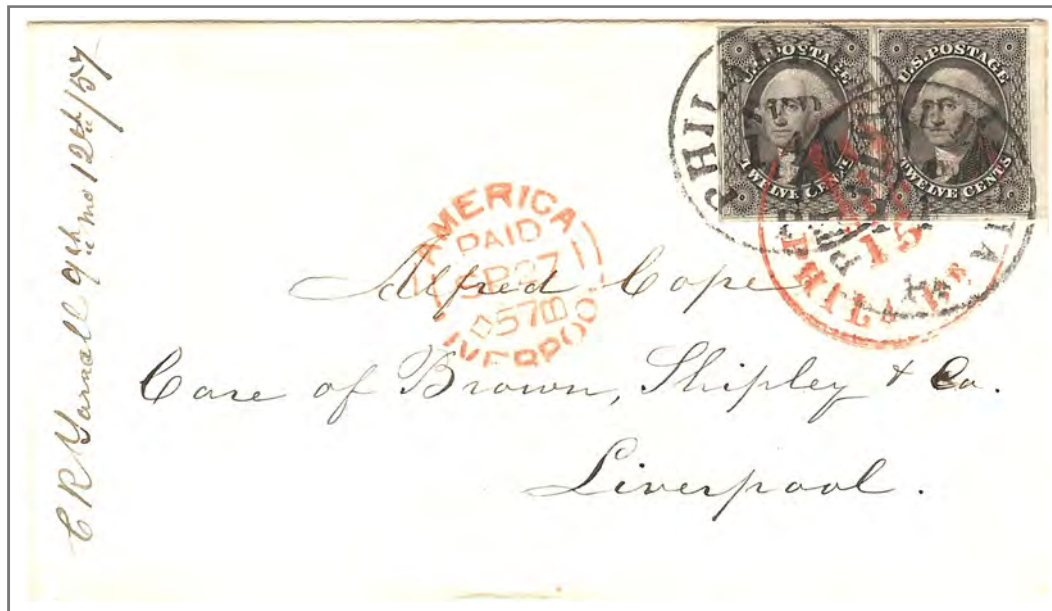 C R Yarnall 9th mo 12th/57
U.S. POSTAGE
TWELVE CENTS
U.S. POSTAGE
TWELVE CENTS
PHILA
15
PHILA Pa
AMERICA
PAID
SP 27
57 B
LIVERPOO
Alfred Cope
Care of Brown, Shipley & Co.
Liverpool.